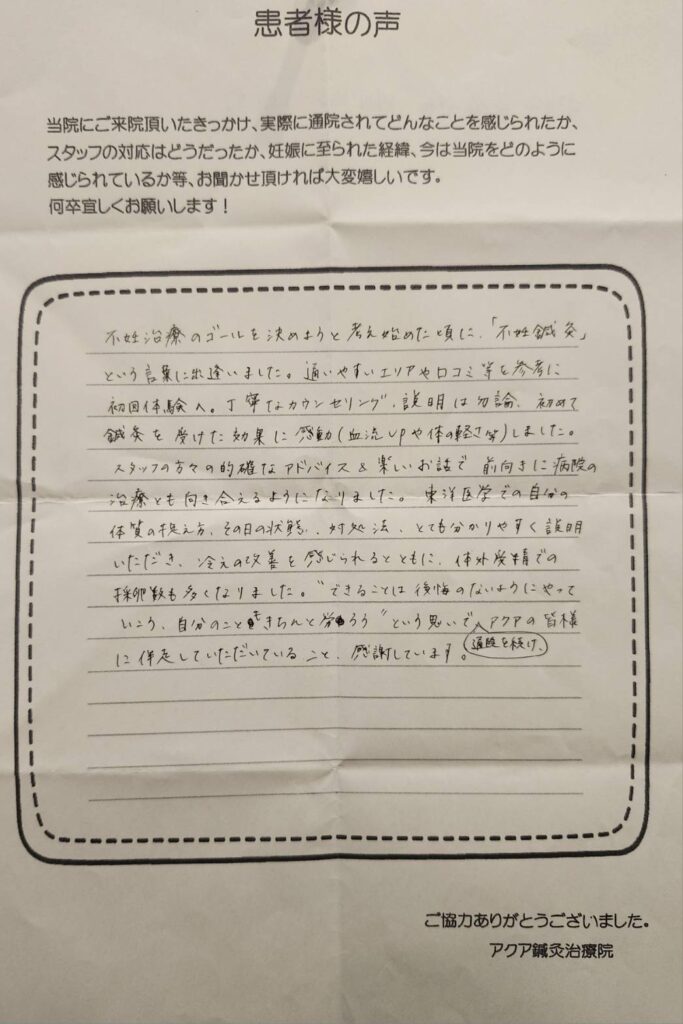 患者様の声
当院にご来院頂いたきっかけ、実際に通院されてどんなことを感じられたか、
スタッフの対応はどうだったか、妊娠に至られた経緯、今は当院をどのように
感じられているか等、お聞かせ頂ければ大変嬉しいです。
何卒宜しくお願いします！
不妊治療のゴールを決めようと考え始めた頃に、「不妊鍼灸」
という言葉に出逢いました。通いやすいエリアや口コミ等を参考に
初回体験へ。丁寧なカウンセリング、説明は勿論、初めて
鍼灸を受けた効果に感動(血流upや体の軽さ等)しました。
スタッフの方々の的確なアドバイス&楽しいお話で前向きに病院の
治療とも向き合えるようになりました。東洋医学での自分の
体質の捉え方、その日の状態、対処法、とても分かりやすく説明
いただき、冷えの改善を感じられるとともに、体外受精での
採卵数も多くなりました。"できることは後悔のないようにやって
いこう、自分のことをきちんと労ろう"という思いで アクアの皆様
通院を続け、
に伴走していただいていること、感謝しています。
ご協力ありがとうございました。
アクア鍼灸治療院